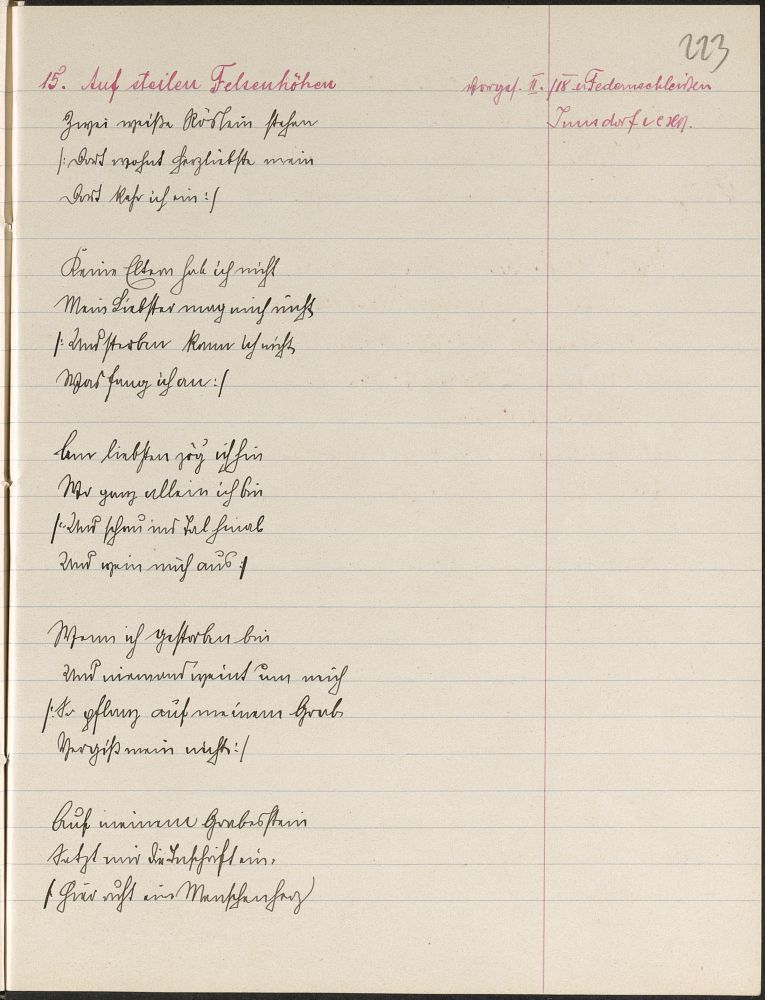 223
15. Auf steilen Felsenhöhen
Vorges. II. /18 b. Federnschleißen
Zwei weiße Röslein stehen
/: Dort wohnt Herzliebste mein
Dort kehr ich ein :/
Keine Eltern hab ich nicht
Mein Liebster mag mich nicht
/: Und sterben kann ich nicht
Was fang ich an :/
Am liebsten zög ich hin
Wo ganz allein ich bin
/: Und schau ins Tal hinab
Und wein mich aus :/
Wenn ich gestorben bin
Und niemand weint um mich
/: So pflanz auf meinem Grab
Vergißmein nicht :/
Auf meinem Grabesstein
Setzt mir die Inschrift ein,
/: Hier ruht ein Menschenherz